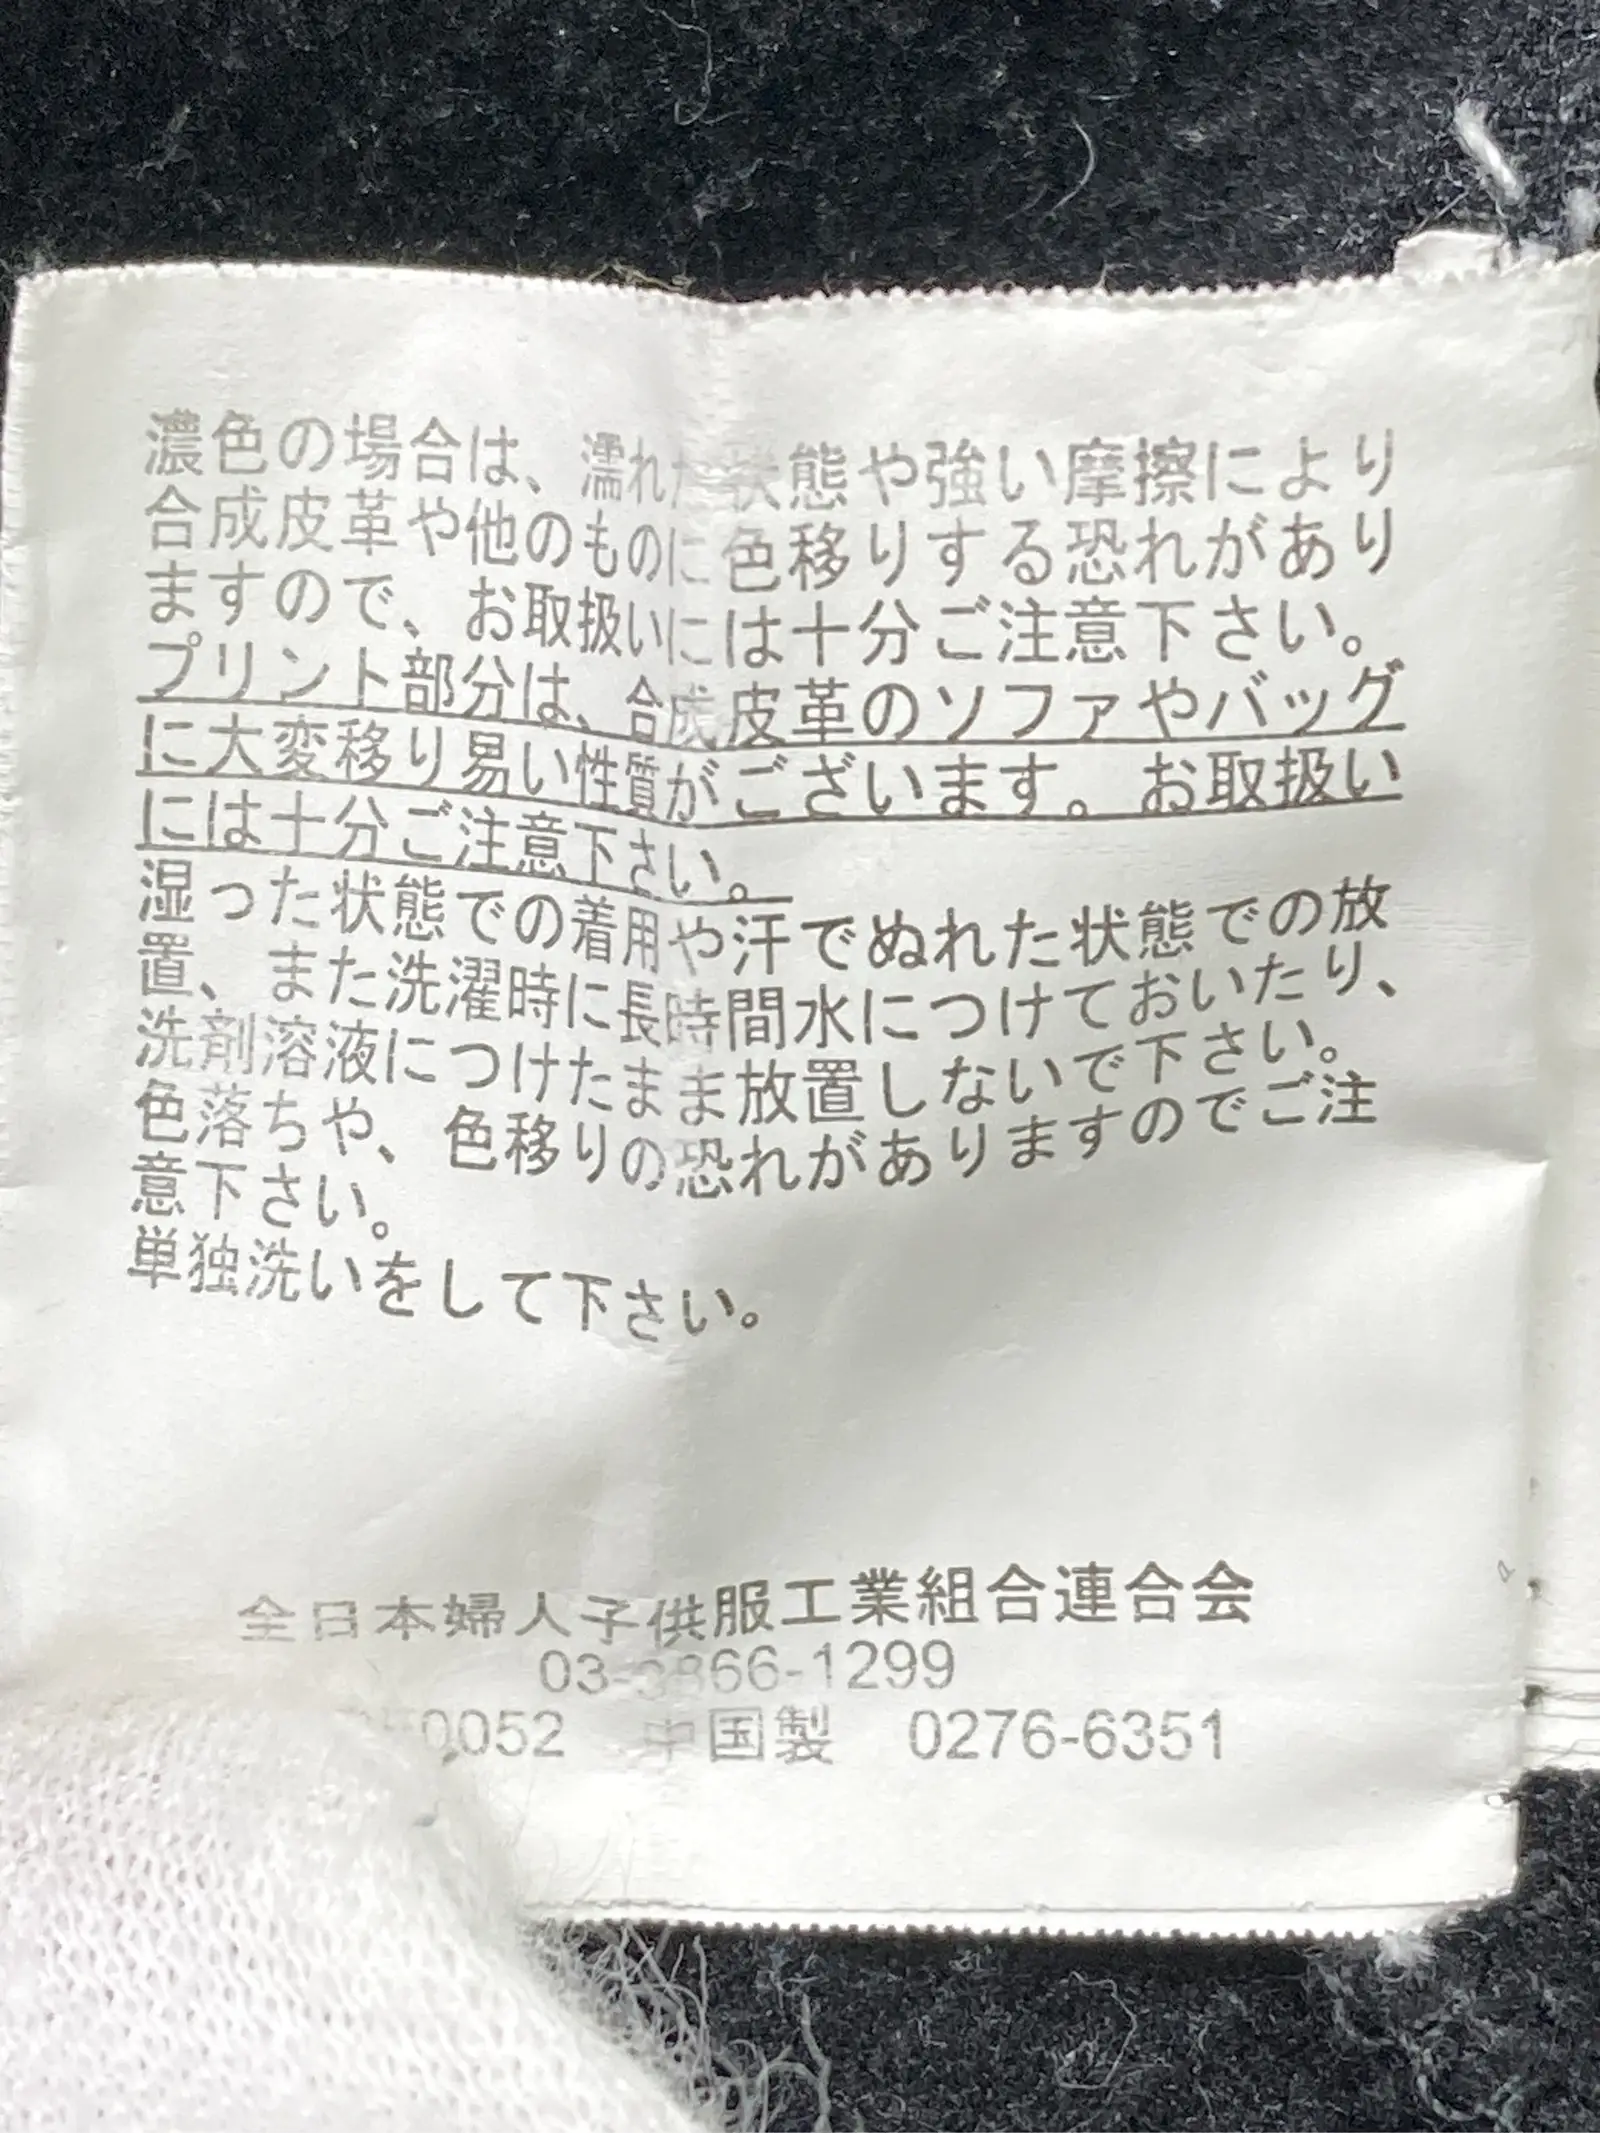 濃色の場合は、濡れた状態や強い摩擦により
合成皮革や他のものに色移りする恐れがあり
ますので、お取扱いには十分ご注意下さい。
プリント部分は、合成皮革のソファやバッグ
に大変移り易い性質がございます。お取扱い
には十分ご注意下さい。
湿った状態での着用や汗でぬれた状態での放
置、また洗濯時に長時間水につけておいたり、
洗剤溶液につけたまま放置しないで下さい。
色落ちや、色移りの恐れがありますのでご注
意下さい。
単独洗いをして下さい。
全日本婦人子供服工業組合連合会
03-3866-1299
0052 中国製 0276-6351